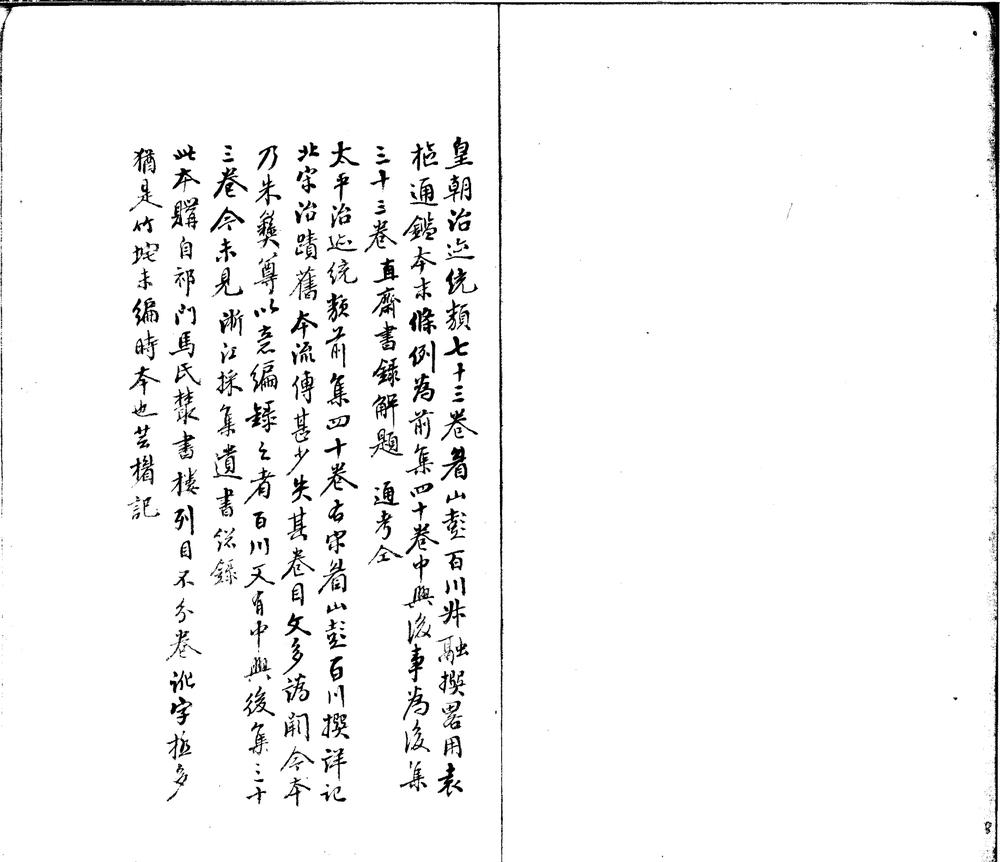 皇朝治迹統類七十三卷眉山彭百川叔融撰畧用袁
樞通鑑本末條例為前集四十卷中興後事為後集
三十三卷直齋書錄解題　通考仝
太平治迹統類前集四十卷右宋眉山彭百川撰詳記
北宋治蹟舊本流傳甚少失其卷目文多譌闕今本
乃朱彝尊以意編錄之者百川又有中興後集三十
三卷今未見浙江採集遺書總錄
此本購自祁門馬氏叢書樓列目不分卷訛字極多
猶是竹垞未編時本也芸楣記
8